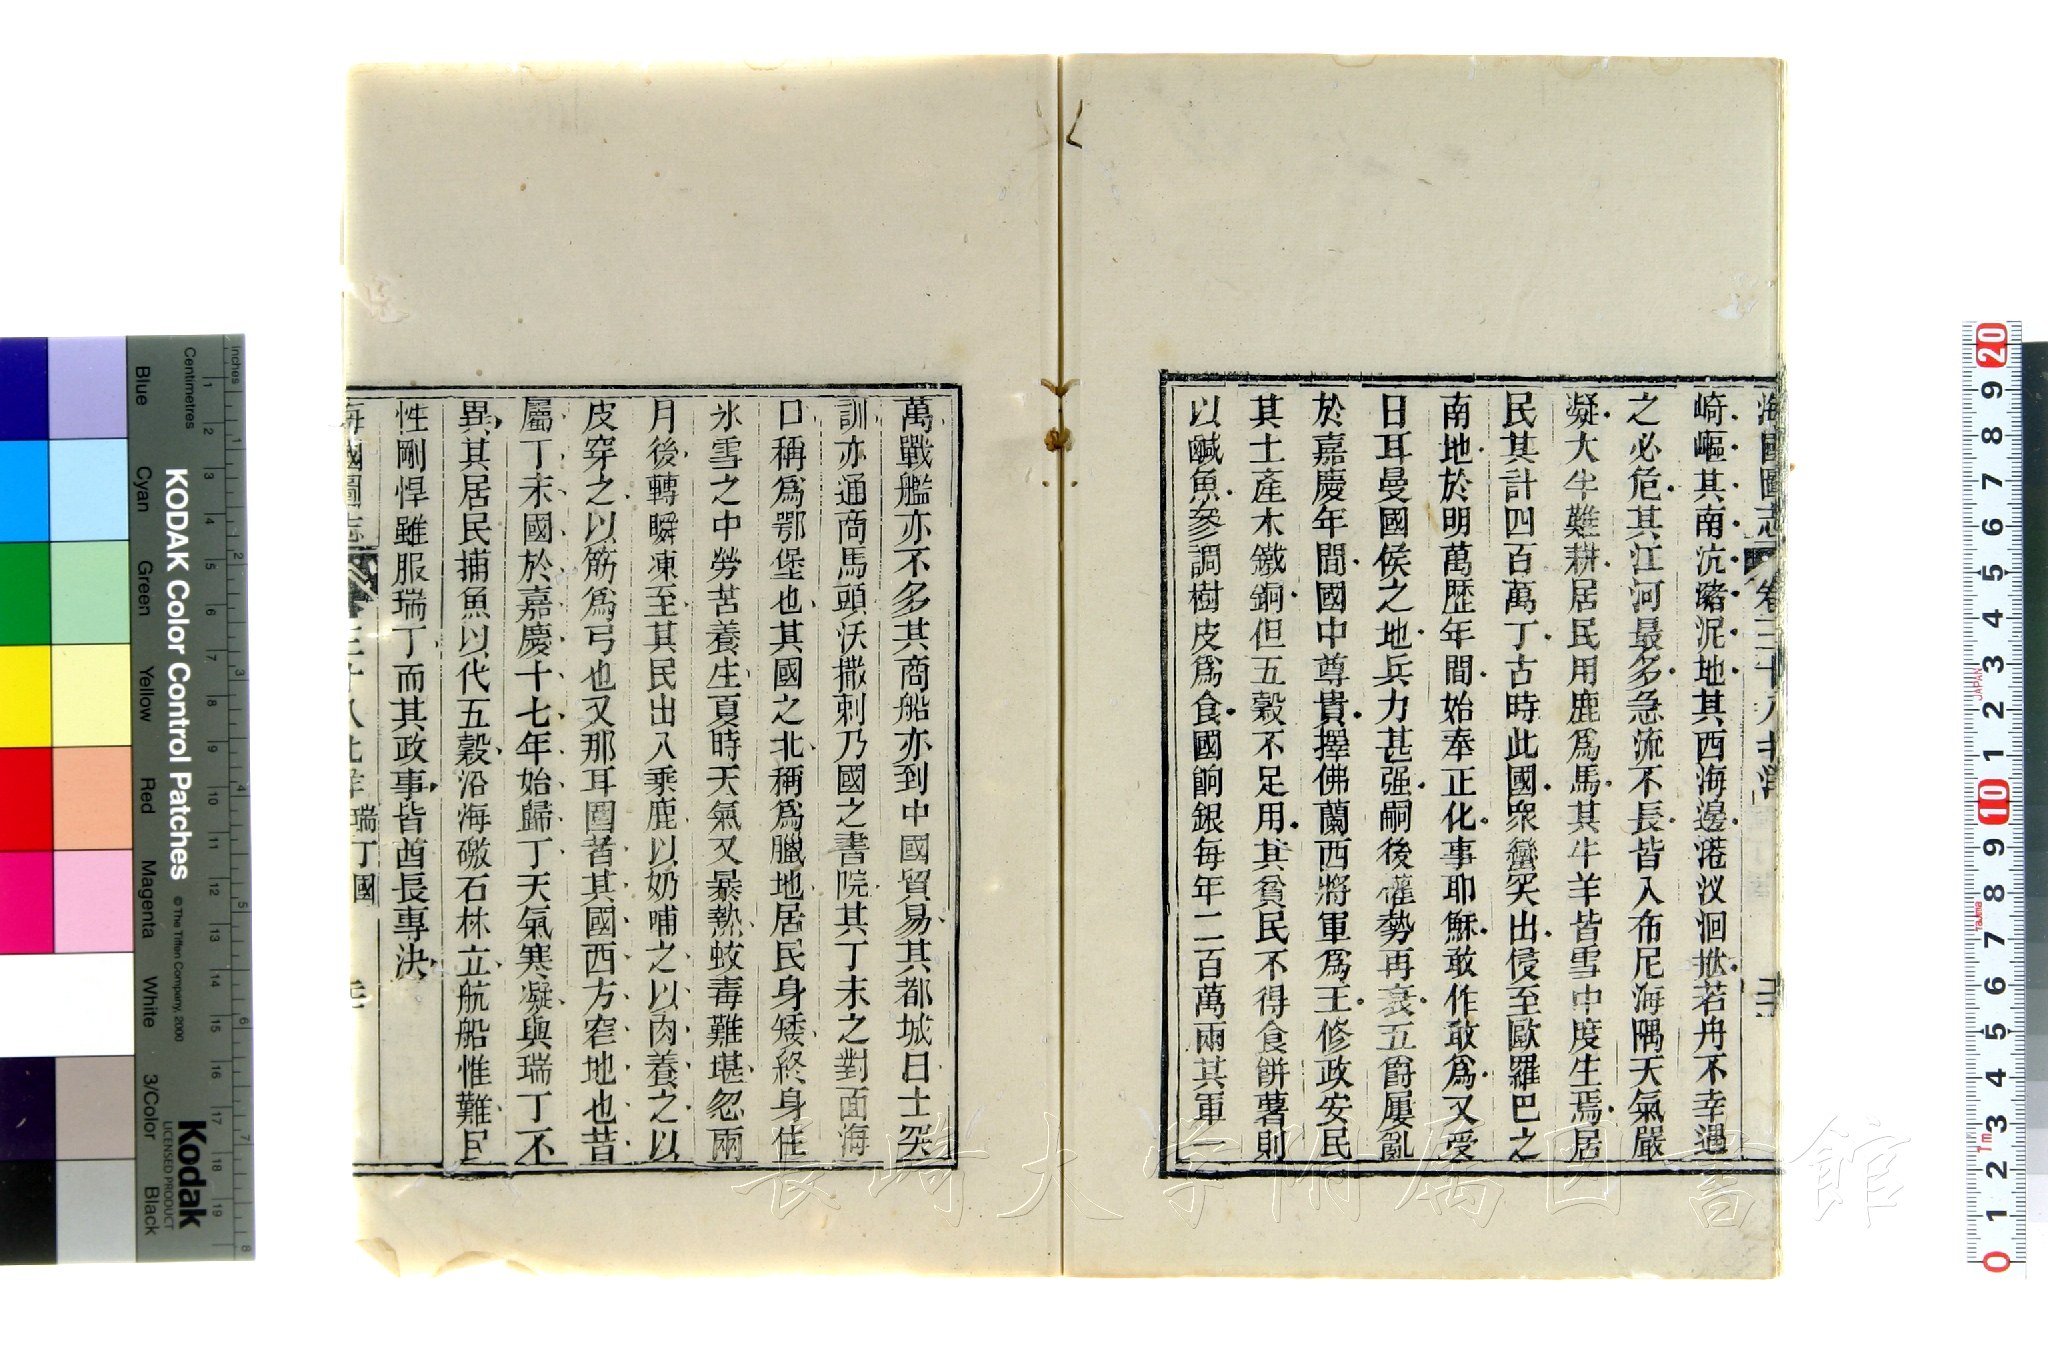 海國圖志 卷三十八 北洋
崎嶇其南坑瀦泥地其西海邊港汊洄㳅若舟不幸過
之必危其江河最多急流不長皆入布尼海隅天氣嚴
凝大半難耕居民用鹿爲馬其牛羊皆雪中度生焉居
民其計四百萬丁古時此國眾蠻突出侵至歐羅巴之
南地於明萬歷年間始奉正化事耶穌敢作敢爲又受
日耳曼國侯之地兵力甚强嗣後權勢再衰五爵屢亂
於嘉慶年間國中尊貴擇佛蘭西將軍爲王修政安民
其土產木鐵銅但五穀不足用其貧民不得食餅薯則
以鹹魚參調樹皮爲食國餉銀每年二百萬兩其軍一
萬戰艦亦不多其商船亦到中國貿易其都城曰士突
訓亦通商馬頭沃撒刺乃國之書院其丁末之對面海
口稱爲鄂堡也其國之北稱爲臘地居民身矮終身住
氷雪之中勞苦養生夏時天氣又暴熱蚊毒難堪忽兩
月後轉瞬凍至其民出入乘鹿以奶哺之以肉養之以
皮穿之以筋爲弓也又那耳圖者其國西方窄地也昔
屬丁末國於嘉慶十七年始歸丁天氣寒凝與瑞丁不
異其居民捕魚以代五穀沿海礮石林立航船惟難民
性剛悍雖服瑞丁而其政事皆酋長專決
海國圖志 卷三十八 北洋 瑞丁國